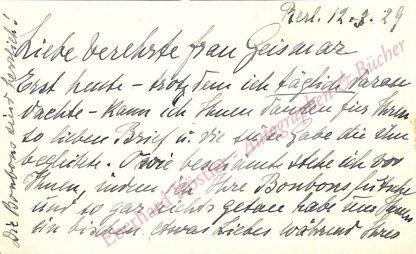 Berl. 12.3.29
Liebe verehrte Frau Geismar
Erst heute – trotzdem ich täglich daran
dachte – kann ich Ihnen danken für Ihren
so lieben Brief u. die süße Gabe die ihn
begleitete. O wie beschämt stehe ich vor
Ihnen, indem ich Ihre Bonbons
und so gar nichts getan habe um Ihnen
ein bischen etwas Liebes während Ihres
Die Bonbons sind herrlich!
Eberhard Köstler Autographen & Bücher